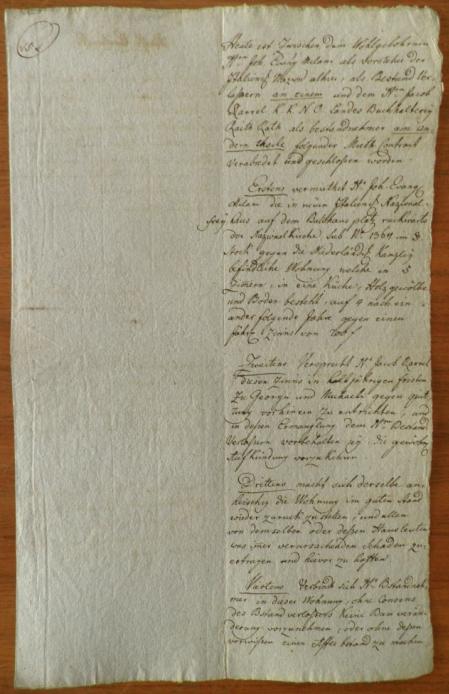 Heute ist Zwischen dem Wohlgebohrnen
Hrn Joh. Evang Milani als Vorsteher der
alhier, als Bestandver
lassern am einem und dem Hrn Jacob
K. K. N. O. Landes Buchhalterey
Raith Rath als bestandnehmer am an-
dern theile folgender Mieth Contract
verabredet und geschlossen worden.
Erstens vermiethet Hr Joh. Evang
Milani die in neuen Italienis: Nazional-
haus auf dem Ballhaus platz rückwärts
der Nazional Kirche sub No im 3
Stock gegen die Niederländis: Kanzley
befindliche Wohnung welche in 5
Zimern, in eine Küche, Holz gewölbe
und Boden besteht, auf nach ein-
ander folgende Jahre gegen einen
Jährl: Zinns von f
Zweitens Verspricht Hr Jacob
diesen Zinns in halbjährigen fristen
zu Georgy und Michaeli gegen quit-
tung vorhinein zu entrichten, und
in dessen Ermanglung dem Hrn Bestand
Verlassern vorbehalten sey, die
Aufkündung vorzukehren.
Drittens macht sich derselbe an-
heischig die Wohnung im guten Stand
wieder zuruck zu stellen, und allen
von demselben oder dessen Hausleuten
was imer verursachenden Schaden zu
ertragen und hievor zu hafften.
Viertens Verbindt sich Hr Bstandneh-
mer in dieser Wohnung, ohne Consens
des Bstandverlassers keine Bau verän-
derung vorzunehmen, oder ohne dessen
vorwissen einen Affter bstand zu machen.